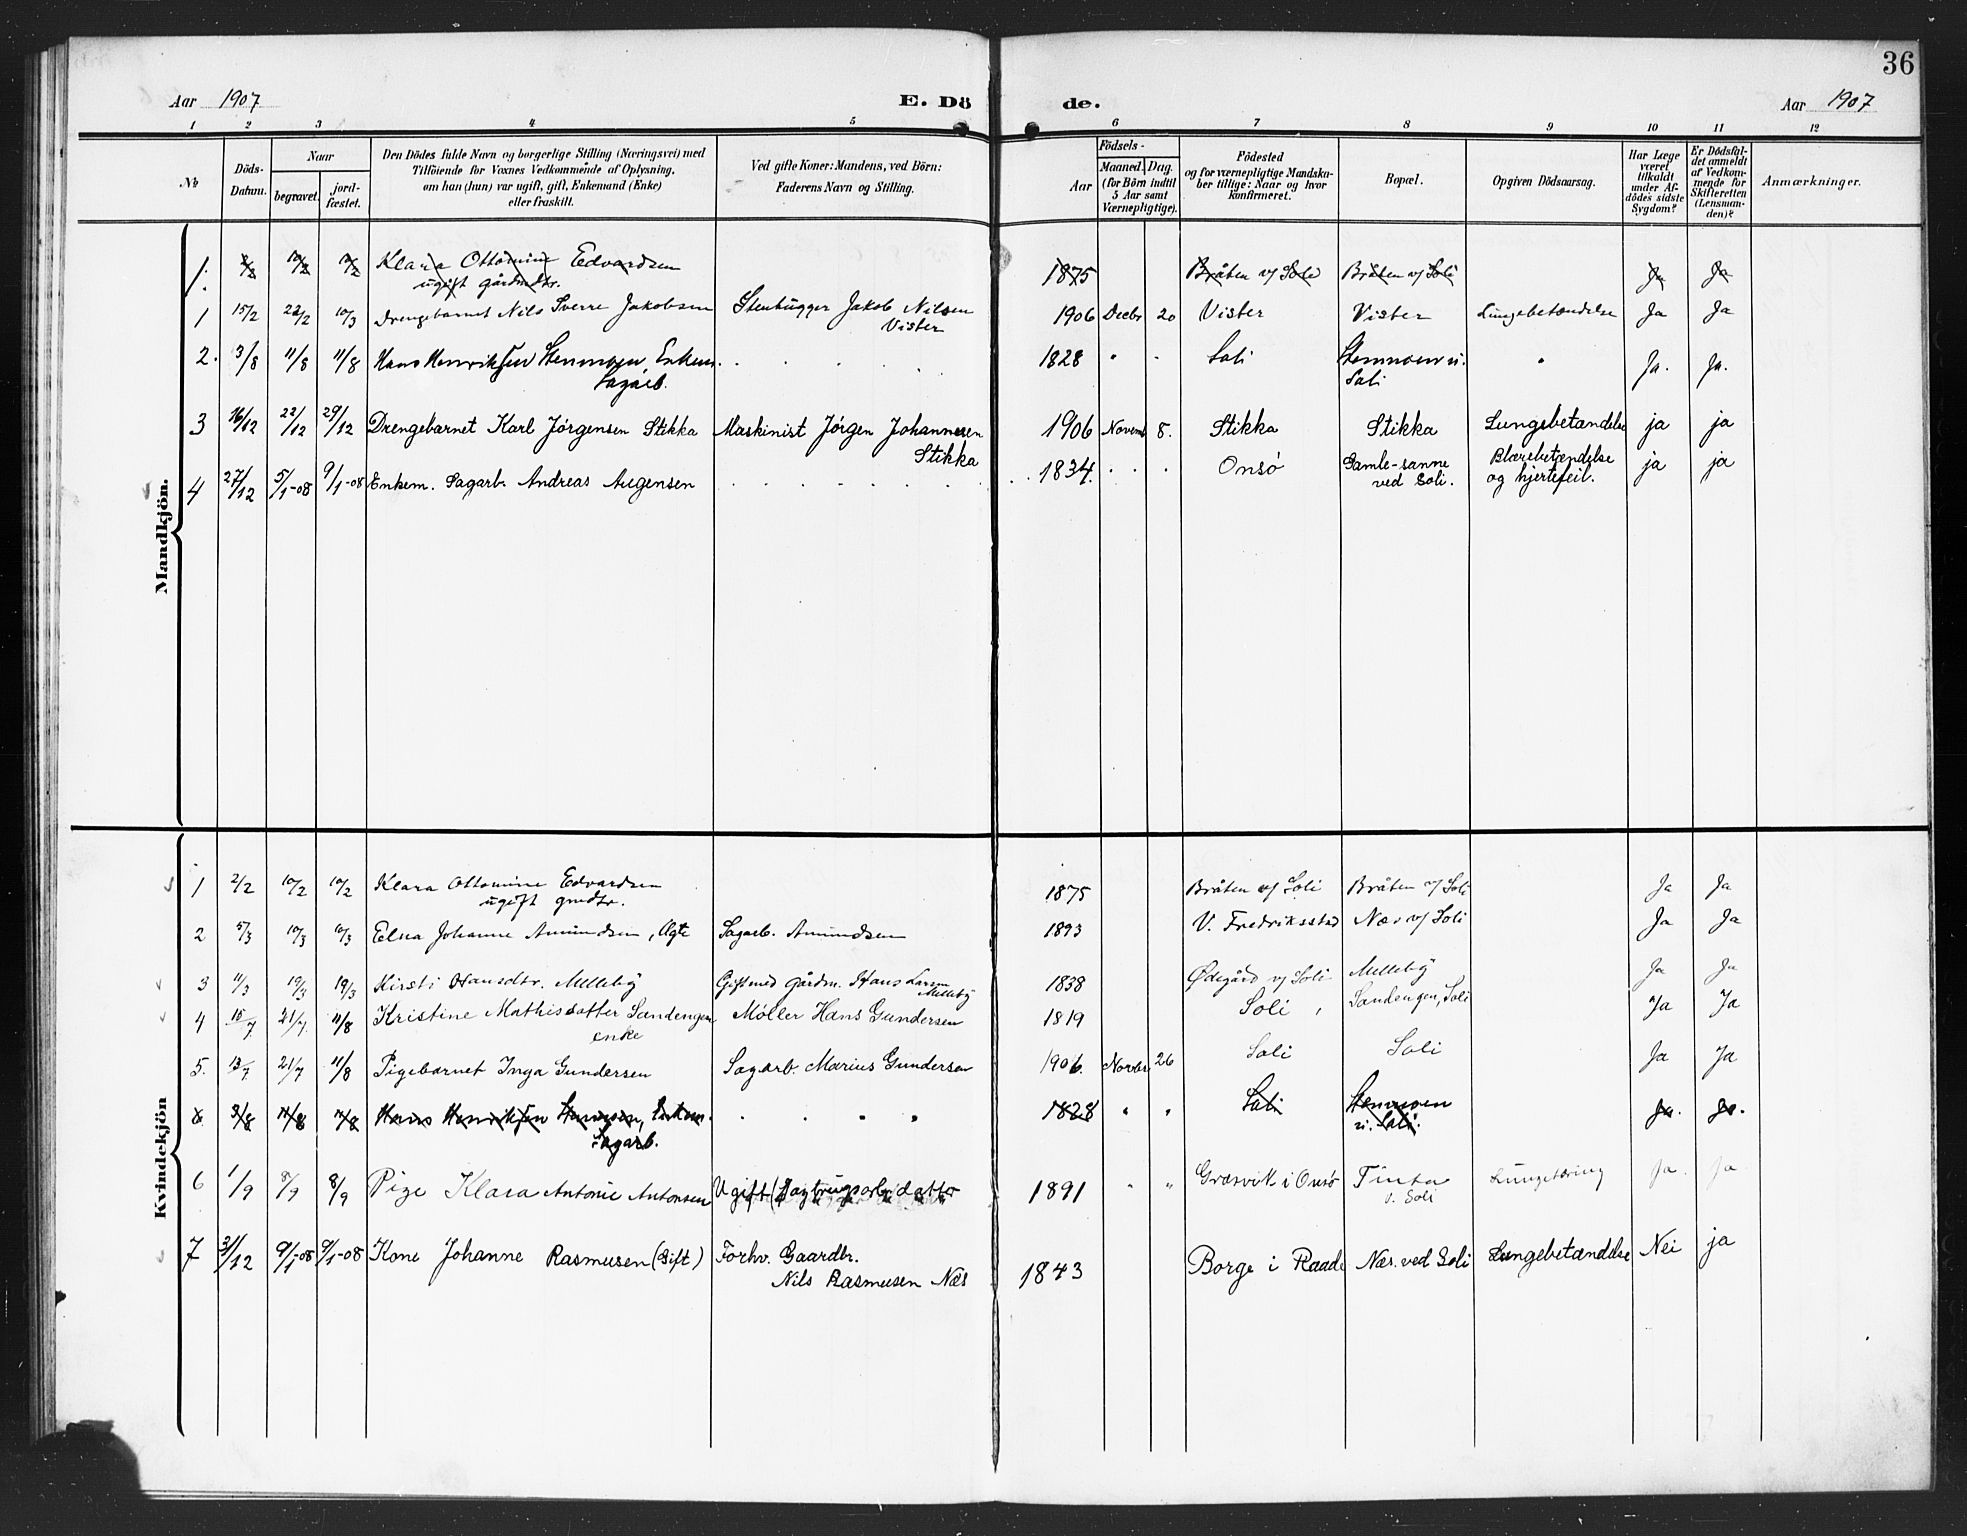 36
Aar 1907 E. Dö de. Aar 1907
1 2 3 4 5 6 7 8 9 10 11 12
№
Döds-Datum.
Naar
begravet.
jord-fæstet.
Den Dödes fulde Navn og borgerlige Stilling (Næringsvei) med
Tilföiende for Voxnes Vedkommende af Oplysning,
om han (hun) var ugift, gift, Enkemand (Enke)
eller fraskilt.
Ved gifte Koner: Mandens, ved Börn:
Faderens Navn og Stilling.
Födsels-
Aar
Maaned. Dag.
(for Börn indtil
5 Aar samt
Værnepligtige).
Födested
og for værnepligtige Mandska-
ber tillige: Naar og hvor
konfirmeret.
Bopæl.
Opgiven Dödsaarsag.
Har Læge
været
tilkaldt
under Af-
dödes sidste
Sygdom?
Er Dödsfal-
det anmeldt
af Vedkom-
mende for
Skifteretten
(Lensman-
den)?
Anmærkninger.
Mandkjön.
1. 2/2 10/2 10/2 Klara Ottomine Edvardsen 1875 Bråten v/ Soli Bråten v/ Soli Ja Ja
ugift gårdmdtr.
1 15/2 22/2 10/3 Drengebarnet Nils Sverre Jakobsen Stenhugger Jakob Nilsen 1906 Decbr 20 Vister Vister Lungebetændelse Ja Ja
Vister
2. 3/8 11/8 11/8 Hans Henriksen Stenmoen, Enkem. 1828 " " Soli Stenmoen u. " Ja. Ja.
Sagarb. Soli
3 16/12 22/12 29/12 Drengebarnet Karl Jørgensen Stikka Maskinist Jørgen Johannesen 1906 Novemb 8. Stikka Stikka Lungebetændelse ja ja
Stikka
4 27/12 5/1-08 9/1-08 Enkem. Sagarb. Andreas Augensen 1834. Onsø Gamle-sanne Blærebetændelse ja ja
ved Soli. og hjertefeil.
Kvindekjön
1 2/2 10/2 10/2 Klara Ottomine Edvardsen 1875 Bråten v/ Soli Bråten v/ Soli Ja Ja
ugift gmdtr.
2 5/3 10/3 10/3 Elna Johanne Amundsen, Ugte Sagarb. Amundsen 1893 V. Fredriksstad Næs v/ Soli Ja Ja
3 11/3 19/3 19/3 Kirsti Hansdtr. Melleby Gift med Gårdm. Hans Larsen 1838 Ødegård v/ Soli Melleby Ja Ja
Melleby
4 15/7 21/7. 11/8 Kristine Mathisdatter Sandengen Møller Hans Gundersen 1819 Soli, Sandengen, Soli Ja Ja
enke
5. 13/7 21/7 11/8 Pigebarnet Inga Gundersen Sagarb. Marius Gundersen 1906. Novbr. 26 Soli Soli Ja Ja
6. 3/8 11/8 11/8 Hans Henriksen Stenmoen, Enkem. 1828 " " Soli Stenmoen Ja. Ja.
Sagarb. u. Soli.
6 1/9 8/9 8/9 Pige Klara Antonie Antonsen Ugift (Sagbrugsarb. datter 1891 " " Græsvik i Onsø Tinta Lungetæring Ja. Ja
v. Soli
7 31/12 9/1-08 9/1-08 Kone Johanne Rasmusen (Gift) Forhv. Gaardbr. 1843 Borge i Raade Næs. ved Soli Lungebetændelse Nei ja
Nils Rasmusen Næs